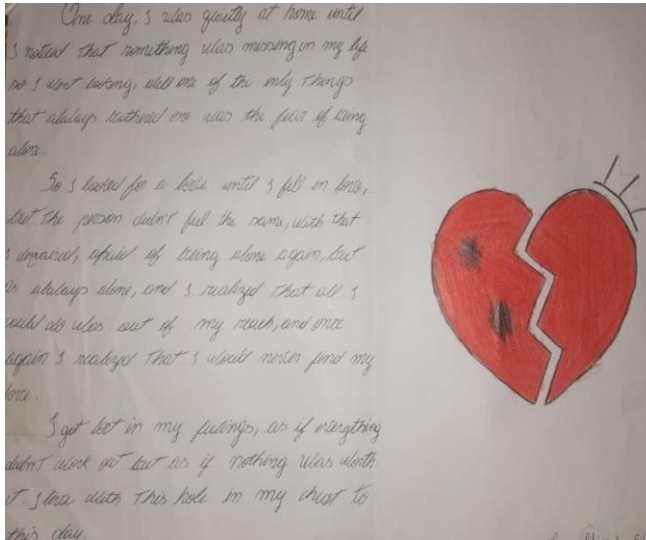 One day, I was quietly at home until
I noticed that something was missing in my life
so I went looking, well one of the only things
that always bothered me was the fear of being
alone.
So I looked for a love until I fell in love,
but the person didn't feel the same, with that
I despaired, afraid of being alone again, but
as always alone, and I realized that all I
could do was out of my reach, and once
again I realized that I would never find my
love.
I got lost in my feelings, as if everything
didn't work out but as if nothing was worth
it. I live with this hole in my chest to
this day.